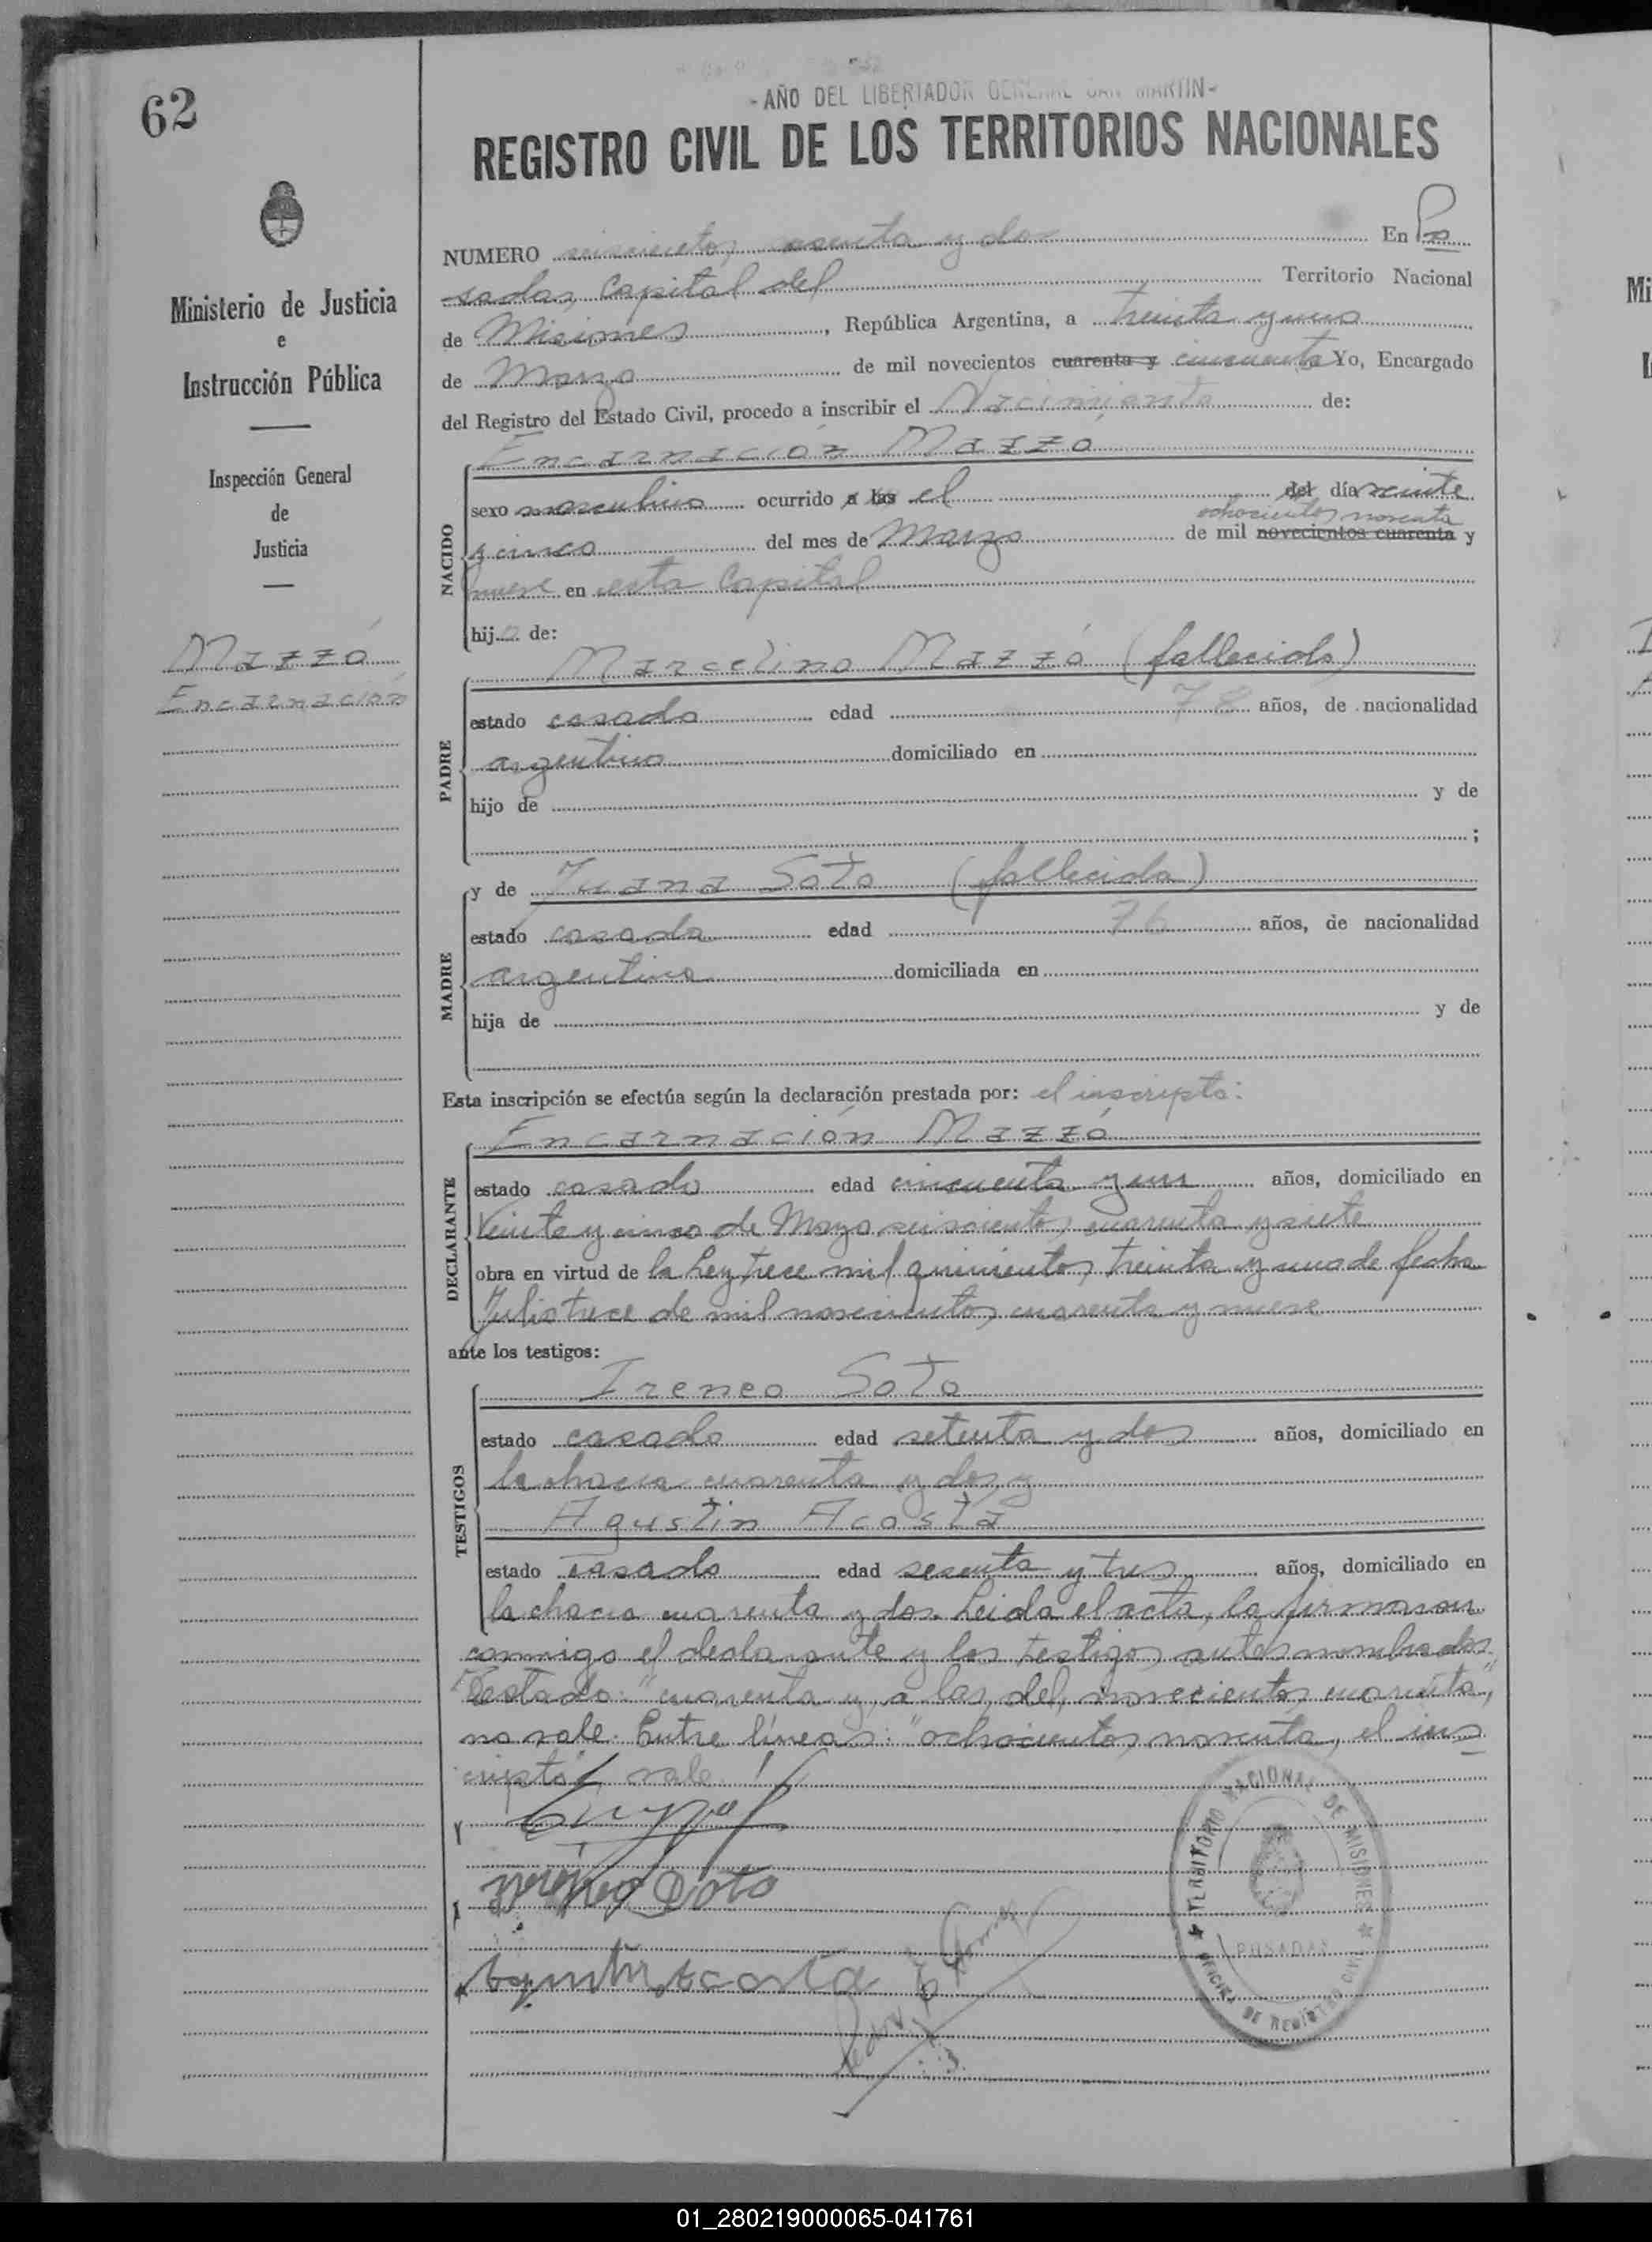 62
- AÑO DEL LIBERTADOR GENERAL SAN MARTIN -
REGISTRO CIVIL DE LOS TERRITORIOS NACIONALES
Ministerio de Justicia
e
Instrucción Pública
Inspección General
de
Justicia
Mazzó
Encarnación
NUMERO seiscientos y dos En Po
sadas, Capital del Territorio Nacional
de Misiones, República Argentina, a treinta y uno
de Marzo de mil novecientos cuarenta y cincuenta Yo, Encargado
del Registro del Estado Civil, procedo a inscribir el Nacimiento de:
Encarnación Mazzó
NACIDO
sexo masculino ocurrido a las el del día veinte
ochocientos noventa
y cinco del mes de Marzo de mil novecientos cuarenta y
nueve en esta Capital
hijo de:
Marcelino Mazzó (fallecido)
PADRE
estado casado edad 78 años, de nacionalidad
argentino domiciliado en
hijo de y de
;
y de Juana Soto (fallecida)
MADRE
estado casada edad 76 años, de nacionalidad
argentina domiciliada en
hija de y de
Esta inscripción se efectúa según la declaración prestada por: el inscripto:
Encarnación Mazzó
DECLARANTE
estado casado edad cincuenta y un años, domiciliado en
Veinte y cinco de Mayo seiscientos cuarenta y siete
obra en virtud de la Ley trece mil quinientos treinta y uno de fecha
Julio trece de mil novecientos cuarenta y nueve
ante los testigos:
Ireneo Soto
TESTIGOS
estado casado edad setenta y dos años, domiciliado en
la chacra cuarenta y dos y
Agustin Acosta
estado casado edad sesenta y tres años, domiciliado en
la chacra cuarenta y dos. Leida el acta, la firmaron
conmigo el declarante y los testigos antes nombrados.
Testado: "cuarenta y, a las, del, novecientos cuarenta",
no vale. Entre líneas: "ochocientos noventa, el ins
cripto", vale.
Ireneo Soto
Agustin Acosta
TERRITORIO NACIONAL DE MISIONES
POSADAS
OFICINA DE REGISTRO CIVIL
01_280219000065-041761